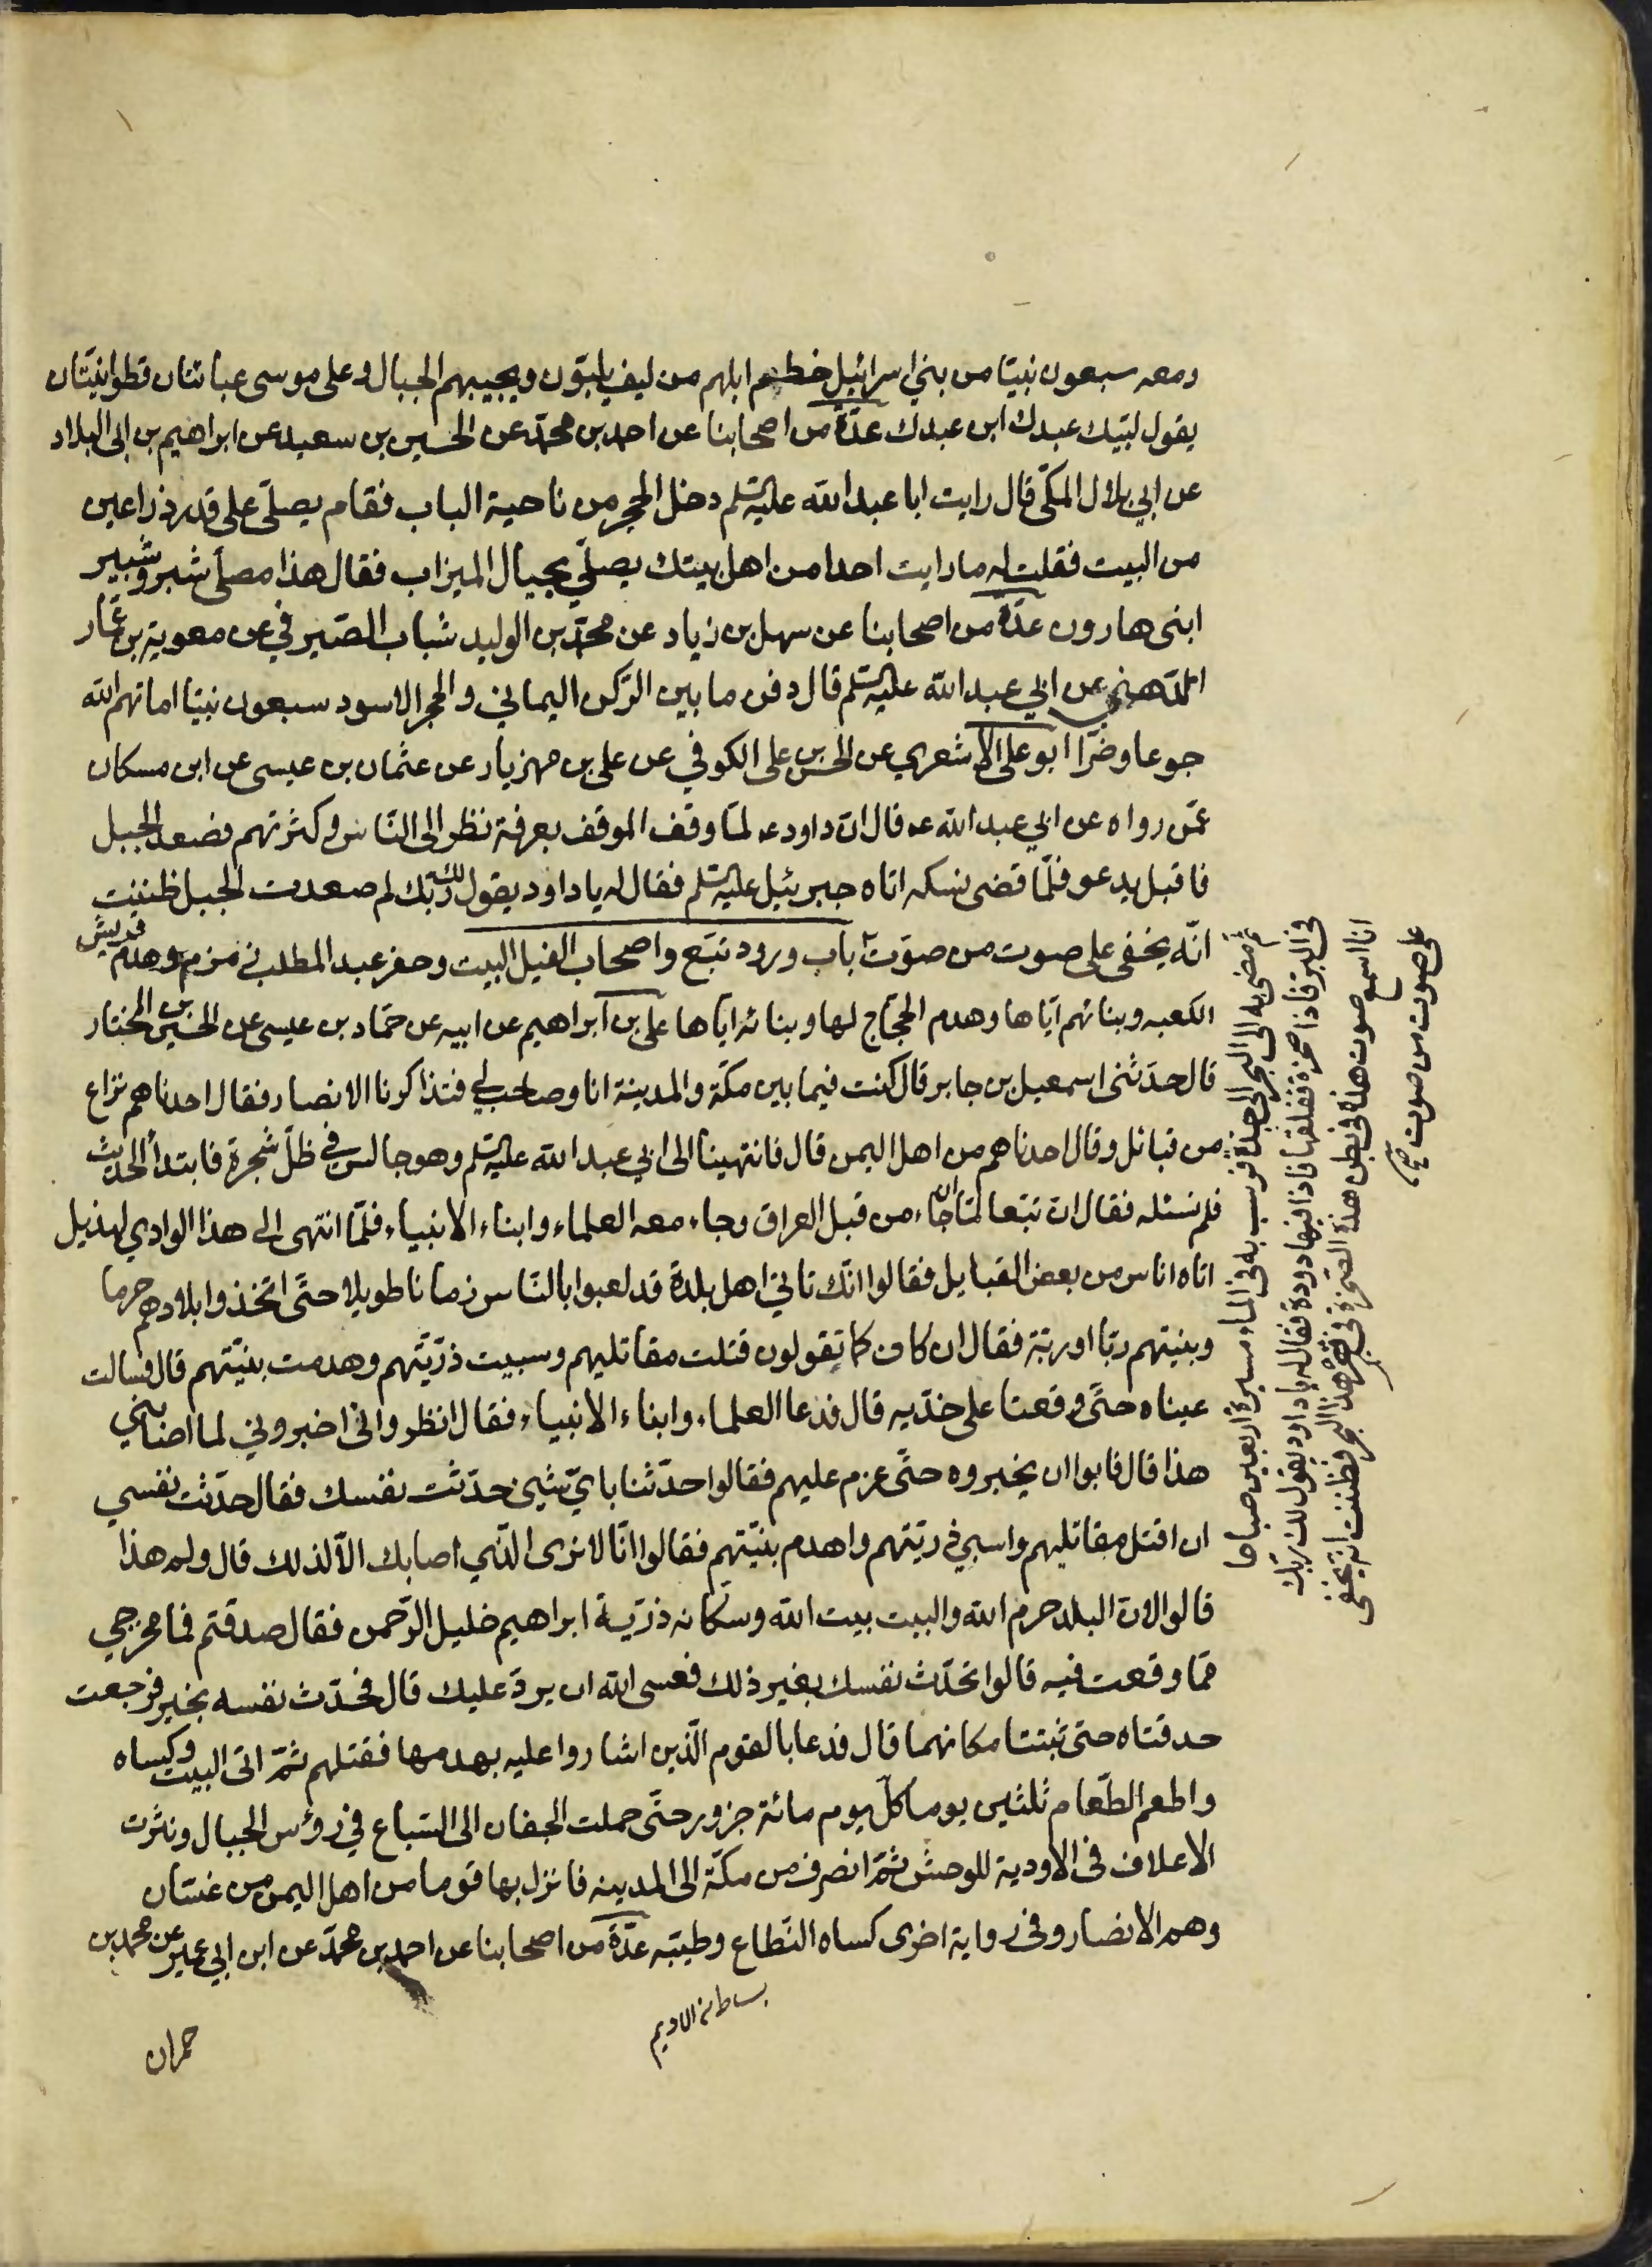 ومعه سبعون نبيّا من بني اسرائيل خطم ابلهم من ليف يلبّون ويجيبهم الجبال وعلى موسى عبائتان قطوانيّتان
يقول لبّيك عبدك ابن عبدك عدّة من اصحابنا عن احمد بن محمّد عن الحسين بن سعيد عن ابراهيم بن ابى البلاد
عن ابي بلال المكّي قال رايت ابا عبد الله عليه السلم دخل الحجر من ناحية الباب فقام يصلّي على قدر ذراعين
من البيت فقلت له ما رايت احدا من اهل بيتك يصلّي بحيال الميزاب فقال هذا مصلّى شبر وشبير
ابنى هارون عدّة من اصحابنا عن سهل بن زياد عن محمّد بن الوليد شباب الصّيرفي عن معوية بن عمّار
الدّهني عن ابي عبد الله عليه السلم قال دفن ما بين الرّكن اليماني والحجر الاسود سبعون نبيّا اماتهم الله
جوعا وضرّا ابو على الاشعري عن الحسن بن على الكوفي عن على بن مهزيار عن عثمان بن عيسى عن ابن مسكان
عمّن رواه عن ابي عبد الله عه قال انّ داود عه لمّا وقف الموقف بعرفة نظر الى النّاس وكثرتهم فصعد الجبل
فاقبل يدعو فلمّا قضى نسكه اتاه جبرئيل عليه السلم فقال له يا داود يقول لك ربّك لم صعدت الجبل ظننت
انّه يخفى على صوت من صوّت باب ورود تبّع واصحاب الفيل البيت وحفر عبد المطلب زمزم وهدم قريش
الكعبه وبنائهم ايّاها وهدم الحجّاج لها وبنائه ايّاها على بن ابراهيم عن ابيه عن حمّاد بن عيسى عن الحسين بن المختار
قال حدّثنى اسمعيل بن جابر قال كنت فيما بين مكّة والمدينة انا وصاحب لي فتذاكرنا الانصار فقال احدنا هم نزاع
من قبائل وقال احدنا هم من اهل اليمن قال فانتهينا الى ابي عبد الله عليه السلم وهو جالس في ظلّ شجرة فابتدأ الحديث
ولم نسئله فقال ان تبّعا لمّا ان جاء من قبل العراق وجاء معه العلماء وابناء الانبياء فلمّا انتهى الى هذا الوادي لهذيل
اتاه اناس من بعض القبايل فقالوا انّك تاتي اهل بلدة قد لعبوا بالنّاس زمانا طويلا حتّى اتّخذوا بلادهم حرما
وبنيتهم ربّا او ربّة فقال ان كان كما تقولون قتلت مقاتليهم وسبيت ذرّيّتهم وهدمت بنيّتهم قال فسالت
عيناه حتّى وقعتا على خدّيه قال فدعا العلماء وابناء الانبياء فقال انظروانى اخبروني لما اصابني
هذا قال فابوا ان يخبروه حتّى عزم عليهم فقالوا حدّثنا بايّ شيئ حدّثت نفسك فقال حدّثت نفسي
ان اقتل مقاتليهم واسبي ذريّتهم واهدم بنيّتهم فقالوا انّا لا نرى الّذي اصابك الّا لذلك قال ولم هذا
قالوا لانّ البلد حرم الله والبيت بيت الله وسكّانه ذرّيّة ابراهيم خليل الرّحمن فقال صدقتم فما مخرجي
ممّا وقعت فيه قالوا تحدّث نفسك بغير ذلك فعسى الله ان يردّ عليك قال فحدّث نفسه بخير فرجعت
حدقتاه حتى ثبتتا مكانهما قال فدعا بالقوم الّذين اشاروا عليه بهدمها فقتلهم ثمّ اتى البيت وكساه
واطعم الطّعام ثلثين يوما كلّ يوم مائة جزور حتّى حملت الجفان الى السّباع في رؤس الجبال ونثرت
الاعلاف في الاودية للوحش ثمّ انصرف من مكّة الى المدينه فانزل بها قوما من اهل اليمن من غسّان
وهم الانصار وفي رواية اخرى كساه النّطاع وطيّبه عدّة من اصحابنا عن احمد بن محمّد عن ابن ابي عمير عن محمد بن
بساط من الاديم
حمران
ثمّ مضى به الى البحر الى جدّة فرسب به في الماء مسيرة اربعين صباحا
في البرّ فاذا صخرة ففلقها فاذا فيها دودة فقال له يا داود يقول لك ربّك
انا اسمع صوت هذه في بطن هذه الصّخرة في قعر هذا البحر فظننت انّه يخفى
على صوت من صوت صح